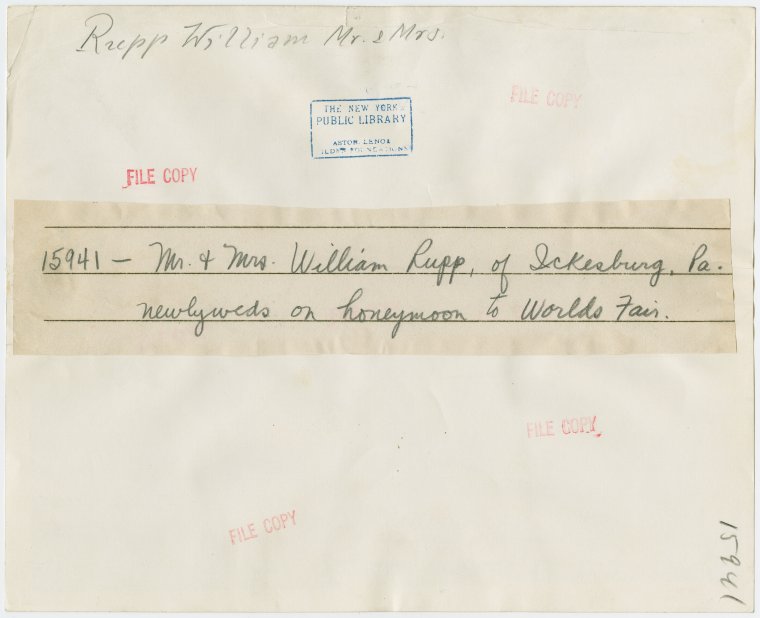 Rupp William Mr. & Mrs.
FILE COPY
THE NEW YORK
PUBLIC LIBRARY
ASTOR, LENOX
TILDEN FOUNDATIONS
FILE COPY
15941 - Mr. & Mrs. William Rupp, of Ickesburg, Pa.
newlyweds on honeymoon to Worlds Fair.
FILE COPY
FILE COPY
15941